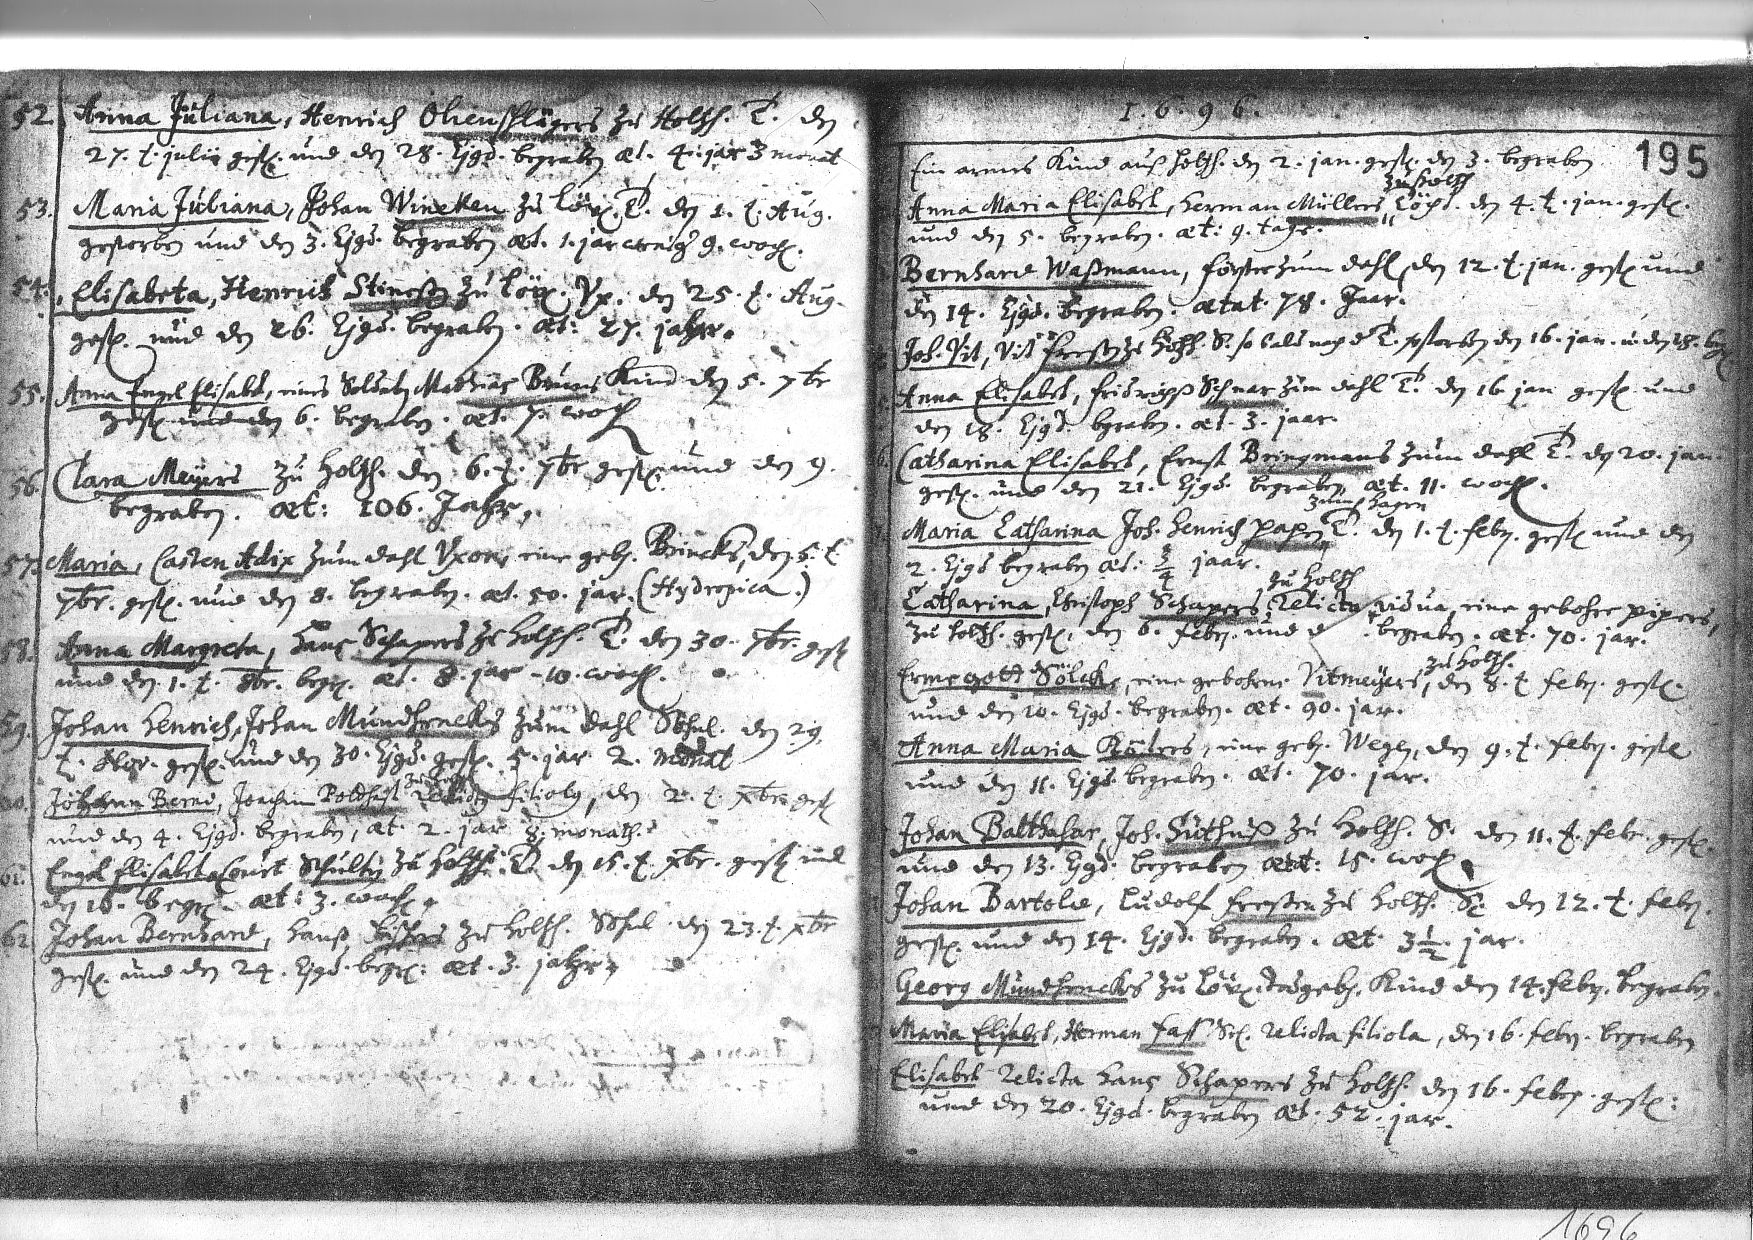 52. Anna Juliana, Henrich Ohenschlägers zu Holtz. T. den
27. t. julii gest. und den 28. Ejgd. begraben æt. 4. jar 3 monat
53. Maria Juliana, Johan Wineken zu Löx. T. den 1. t. Aug.
gestorben und den 3. Ejgd. begraben æt. 1. jar wenig 9. woch.
54. Elisabeta, Henrich zu Löx. Ux. den 25. t. Aug.
gest. und den 26. Ejgd. begraben. æt: 27. jahr.
55. Anna Engel Elisabet, eines Soldaten Mathias Bruns Kind den 5. 7br
gest. und den 6. begraben. æt. 7. woch
56. Clara Meyers zu Holtz. den 6. t. 7br gest. und den 9.
begraben. æt: 106. Jahr.
57. Maria, Casten Adix zum dahl Uxor, eine geb. Brincks, den 5. t
7br. gest. und den 8. begraben. æt. 50. jar. (Hydropica.)
58. Anna Margreta, Hans Schapers zu Holtz. T. den 30. 7br. gest
und den 1. t. 8br. begr. æt. 8. jar 10. woch.
59. Johan Henrich, Johan Mundhencks zum Dahl Söhnl. den 29.
t. gest. und den 30. Ejgd. gest. 5. jar 2. monat
60. Johan Bernd, Joachim relictus filiolus, den 2. t. xbr gest
und den 4. Ejgd. begraben, æt. 2. jar 8. monath.
61. Engel Elisabet Court Schulten zu Holtz. T. den 15. t. xbr. gest und
den 16. begr. æt: 3. woch.
62. Johan Bernhard, Hanß zu Holtz. Söhnl den 23. t. xbr
gest. und den 24. Ejgd. begr: æt. 3. jahr
1. 6. 9 6.
195
Ein armes Kind auß Holtz. den 2. jan. gest. den 3. begraben
zu Holtz
Anna Maria Elisabet, Herman Müllers Töcht. den 4. t. jan. gest.
und den 5. begraben. æt: 9. tage.
Bernhard Waßmann, förster zum dahl, den 12. t. jan. gest und
den 14. Ejgd. begraben. ætat. 78. Jaar.
Joh. Vit, Vit Fresen zu Holtz. S. so bald nach d. T. gestorben den 16. jan. u. den 18. begr
Anna Elisabet, fridrich Schnar zum dahl T. den 16 jan gest und
den 18. Ejgd. bgraben. æt. 3. jaar.
6. Catharina Elisabet, Ernst Bringmans zum dahl T. den 20. jan.
gest. und den 21. Ejgd. begraben, æt. 11. woch.
zum Hagen
Maria Catharina Joh. Henrich Papen T. den 1. t. febr. gest und den
2. Ejgd begraben æt: 3/4 jaar.
zu Holtz
Catharina, Christoph Schapers relicta vidua, eine gebohrne pipers,
zu Holtz. gest. den 6. febr. und d begraben. æt. 70. jar.
zu Holtz.
Ermegott Sölcke, eine gebohrne Vitmeyers, den 8. t febr. gest.
und den 10. Ejgd. begraben. æt. 90. jar.
Anna Maria Kösters, eine geb. Wegen, den 9. t. febr. gest
und den 11. Ejgd begraben. æt. 70. jar.
Johan Balthasar, Joh. Suthuß zu Holtz. S. den 11. t. febr. gest.
und den 13. Ejgd. begraben æt: 15. woch
Johan Bartold, Ludolf Fresen zu Holtz. S. den 12. t. febr.
gest. und den 14. Ejgd. begraben. æt. 3 1/2. jar.
Georg Mundhencks zu Löx. todgeb. Kind den 14. febr. begraben.
Maria Elisabet, Herman Fasß Sel. relicta filiola, den 16. febr. begraben
Elisabet relicta Hans Schapers zu Holtz. den 16. febr. gest:
und den 20. Ejgd. begraben æt. 52. jar.
1696